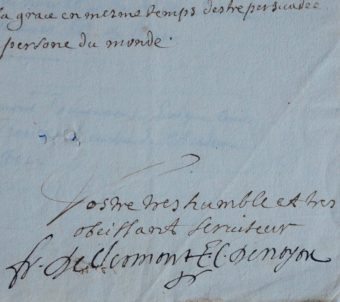 la grace en mesme temps destre persuadée
persone du monde.
Vostre tres humble et tres
obeissant serviteur
fr. De Clermont E. C. De noyon